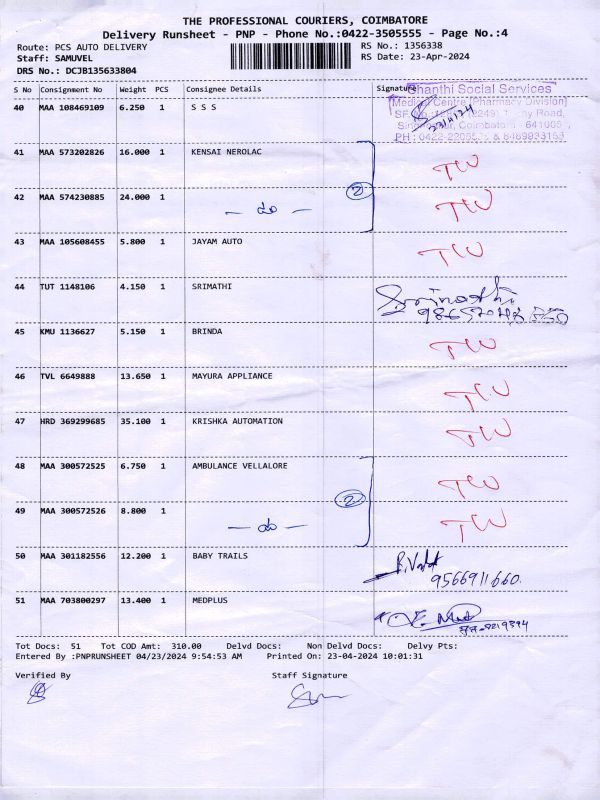 THE PROFESSIONAL COURIERS, COIMBATORE
Delivery Runsheet - PNP - Phone No.:0422-3505555 - Page No.:4
Route: PCS AUTO DELIVERY RS No.: 1356338
Staff: SAMUVEL RS Date: 23-Apr-2024
DRS No.: DCJB135633804
S No Consignment No Weight PCS Consignee Details Signature
Shanthi Social Services
40 MAA 108469109 6.250 1 S S S
Medical Centre [Pharmacy Division]
Coimbatore - 641005
41 MAA 573202826 16.000 1 KENSAI NEROLAC
2
42 MAA 574230885 24.000 1
43 MAA 105608455 5.800 1 JAYAM AUTO
44 TUT 1148106 4.150 1 SRIMATHI
45 KMU 1136627 5.150 1 BRINDA
46 TVL 6649888 13.650 1 MAYURA APPLIANCE
47 HRD 369299685 35.100 1 KRISHKA AUTOMATION
48 MAA 300572525 6.750 1 AMBULANCE VELLALORE
2
49 MAA 300572526 8.800 1
50 MAA 301182556 12.200 1 BABY TRAILS
9566911660
51 MAA 703800297 13.400 1 MEDPLUS
Tot Docs: 51 Tot COD Amt: 310.00 Delvd Docs: Non Delvd Docs: Delvy Pts:
Entered By :PNPRUNSHEET 04/23/2024 9:54:53 AM Printed On: 23-04-2024 10:01:31
Verified By Staff Signature